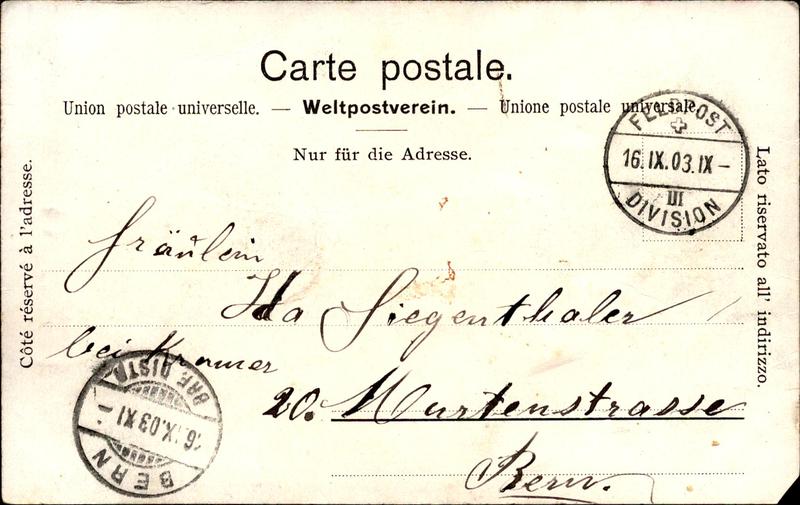 Carte postale.
Union postale universelle. — Weltpostverein. — Unione postale universale.
Nur für die Adresse.
Côté réservé à l'adresse.
Lato riservato all' indirizzo.
FELDPOST
16.IX.03.IX–
III
DIVISION
Fräulein
Ida Siegenthaler
bei Kramer
20. Murtenstrasse
Bern.
BRF. DISTR.
16.IX.03 XI–
BERN